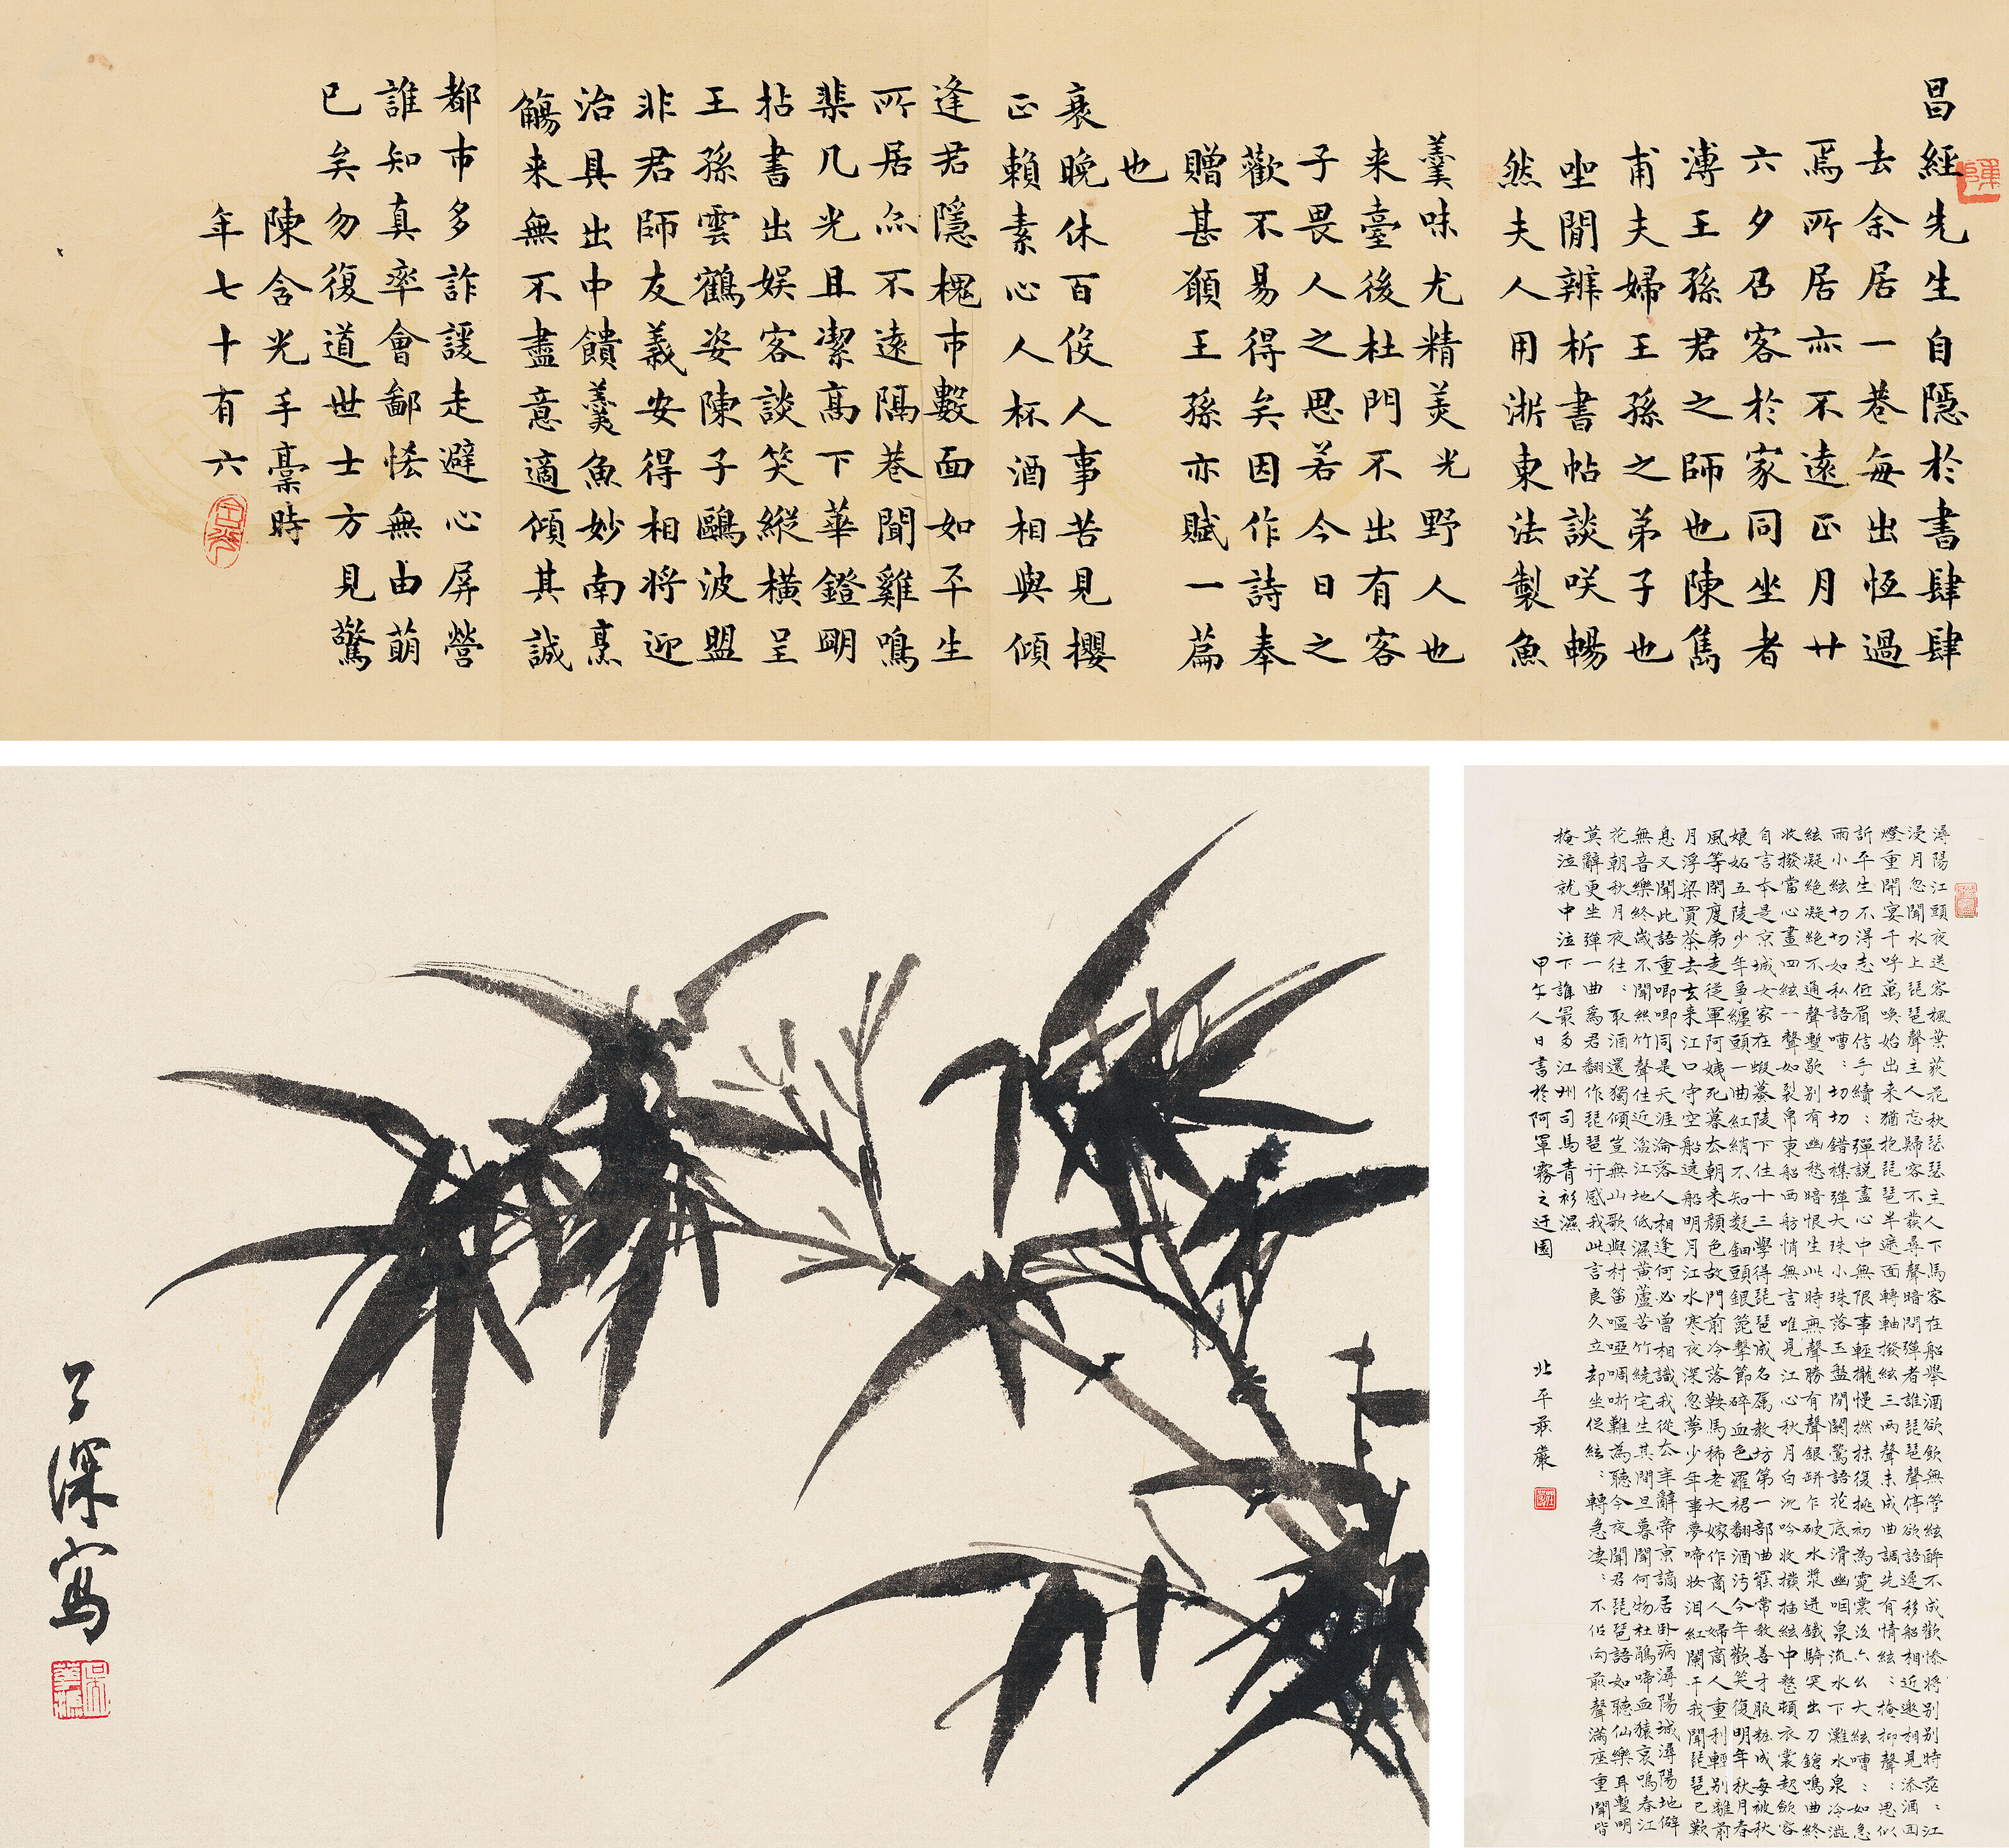 昌經先生自隱於書肆肆
去余居一巷每出恆過
焉所居亦不遠正月廿
六夕召客於家同坐者
溥王孫君之師也陳雋
甫夫婦王孫之弟子也
坐閒辨析書帖談咲暢
然夫人用浙東法製魚
羹味尤精美光野人也
来臺後杜門不出有客
子畏人之思若今日之
歡不易得矣因作詩奉
贈甚願王孫亦賦一篇
也
衰晚休百役人事苦見攖
正賴素心人杯酒相與傾
逢君隱槐市數面如平生
所居尒不遠隔巷聞雞鳴
棐几光且潔高下華鐙明
拈書出娱客談笑縱橫呈
王孫雲鶴姿陳子鷗波盟
非君師友義安得相將迎
治具出中饋羹魚妙南烹
觴来無不盡意適傾其誠
都市多詐諼走避心屏營
誰知真率會鄙悋無由萌
已矣勿復道世士方見驚
陳含光手藁時
年七十有六
子深寫
潯陽江頭夜送客楓葉荻花秋瑟瑟主人下馬客在船舉酒欲飲無管絃醉不成歡慘將別別特茫:江
浸月忽聞水上琵琶聲主人忘歸客不發尋聲暗問彈者誰琵琶聲停欲語遲移船相近邀相見添酒回
燈重開宴千呼萬喚始出来猶抱琵琶半遮面轉軸撥絃三兩聲未成曲調先有情絃:掩抑聲:思似
訴平生不得志低眉信手續:彈說盡心中無限事輕攏慢撚抹復挑初為霓裳後六幺大絃嘈:如急
雨小絃切切如私語嘈:切切錯雜彈大珠小珠落玉盤閒關鶯語花底滑幽咽泉流水下灘水泉冷澁
絃凝絕凝絕不通聲蹔歇別有幽愁暗恨生此時無聲勝有聲銀缾乍破水漿迸鐵騎突出刀鎗鳴曲終
收撥當心畫四絃一聲如裂帛東船西舫悄無言唯見江心秋月白沉吟收撥插絃中整頓衣裳起歛容
自言本是京城女家在蝦蟇陵下住十三學得琵琶成名属教坊第一部曲罷常教善才服粧成每被秋
娘妬五陵少年爭纏頭一曲紅綃不知數鈿頭銀篦擊節碎血色羅裙翻酒污今年歡笑復明年秋月春
風等閑度弟走從軍阿姨死暮去朝来顏色故門前冷落鞍馬稀老大嫁作商人婦商人重利輕別離前
月浮梁買茶去去来江口守空船遶船明月江水寒夜深忽夢少年事夢啼妝淚紅闌干我聞琵琶已歎
息又聞此語重唧唧同是天涯淪落人相逢何必曾相識我從去年辭帝京謫居卧病潯陽城潯陽地僻
無音樂終歲不聞絲竹聲住近湓江地低濕黄蘆苦竹繞宅生其間旦暮聞何物杜鵑啼血猿哀鳴春江
花朝秋月夜往:取酒還獨傾豈無山歌與村笛嘔啞啁哳難為聽今夜聞君琵琶語如聽仙樂耳蹔明
莫辭更坐彈一曲為君翻作琵琶行感我此言良久立却坐促絃:轉急凄:不似向前聲滿座重聞皆
掩泣就中泣下誰最多江州司馬青衫濕
甲午人日書於阿罩霧之迂園
北平莊嚴